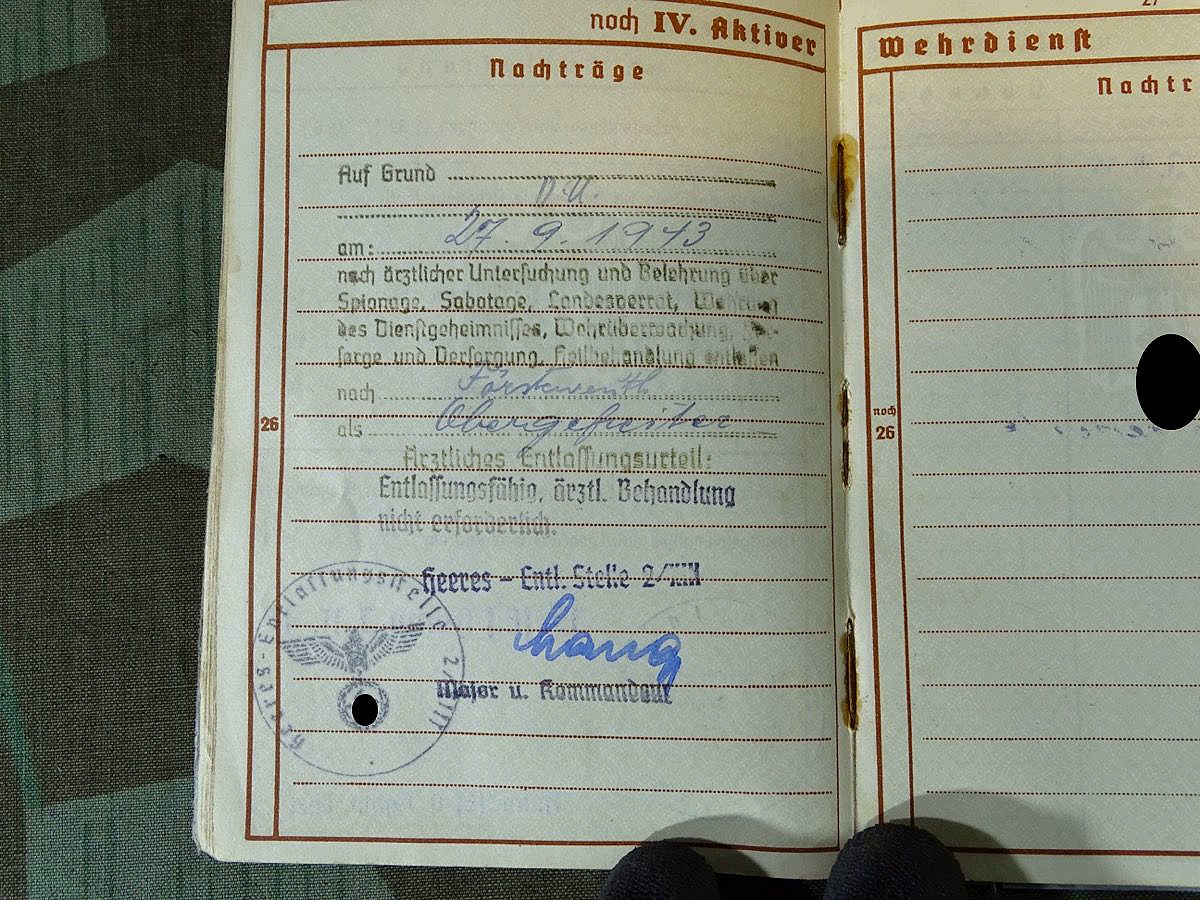 27
noch IV. Aktiver
Wehrdienst
Nachträge
Nachtr
Auf Grund
D.U.
am: 27. 9. 1943
nach ärztlicher Untersuchung und Belehrung über
Spionage, Sabotage, Landesverrat, Wahrung
des Dienstgeheimnisses, Wehrüberwachung, Für-
sorge und Versorgung, Heilbehandlung entlassen
nach
als Obergefreiter
26
noch
26
Ärztliches Entlassungsurteil:
Entlassungsfähig, ärztl. Behandlung
nicht erforderlich.
Heeres - Entl. Stelle 2/XIII
Major u. Kommandant
Heeres-Entlassungsstelle 2/XIII